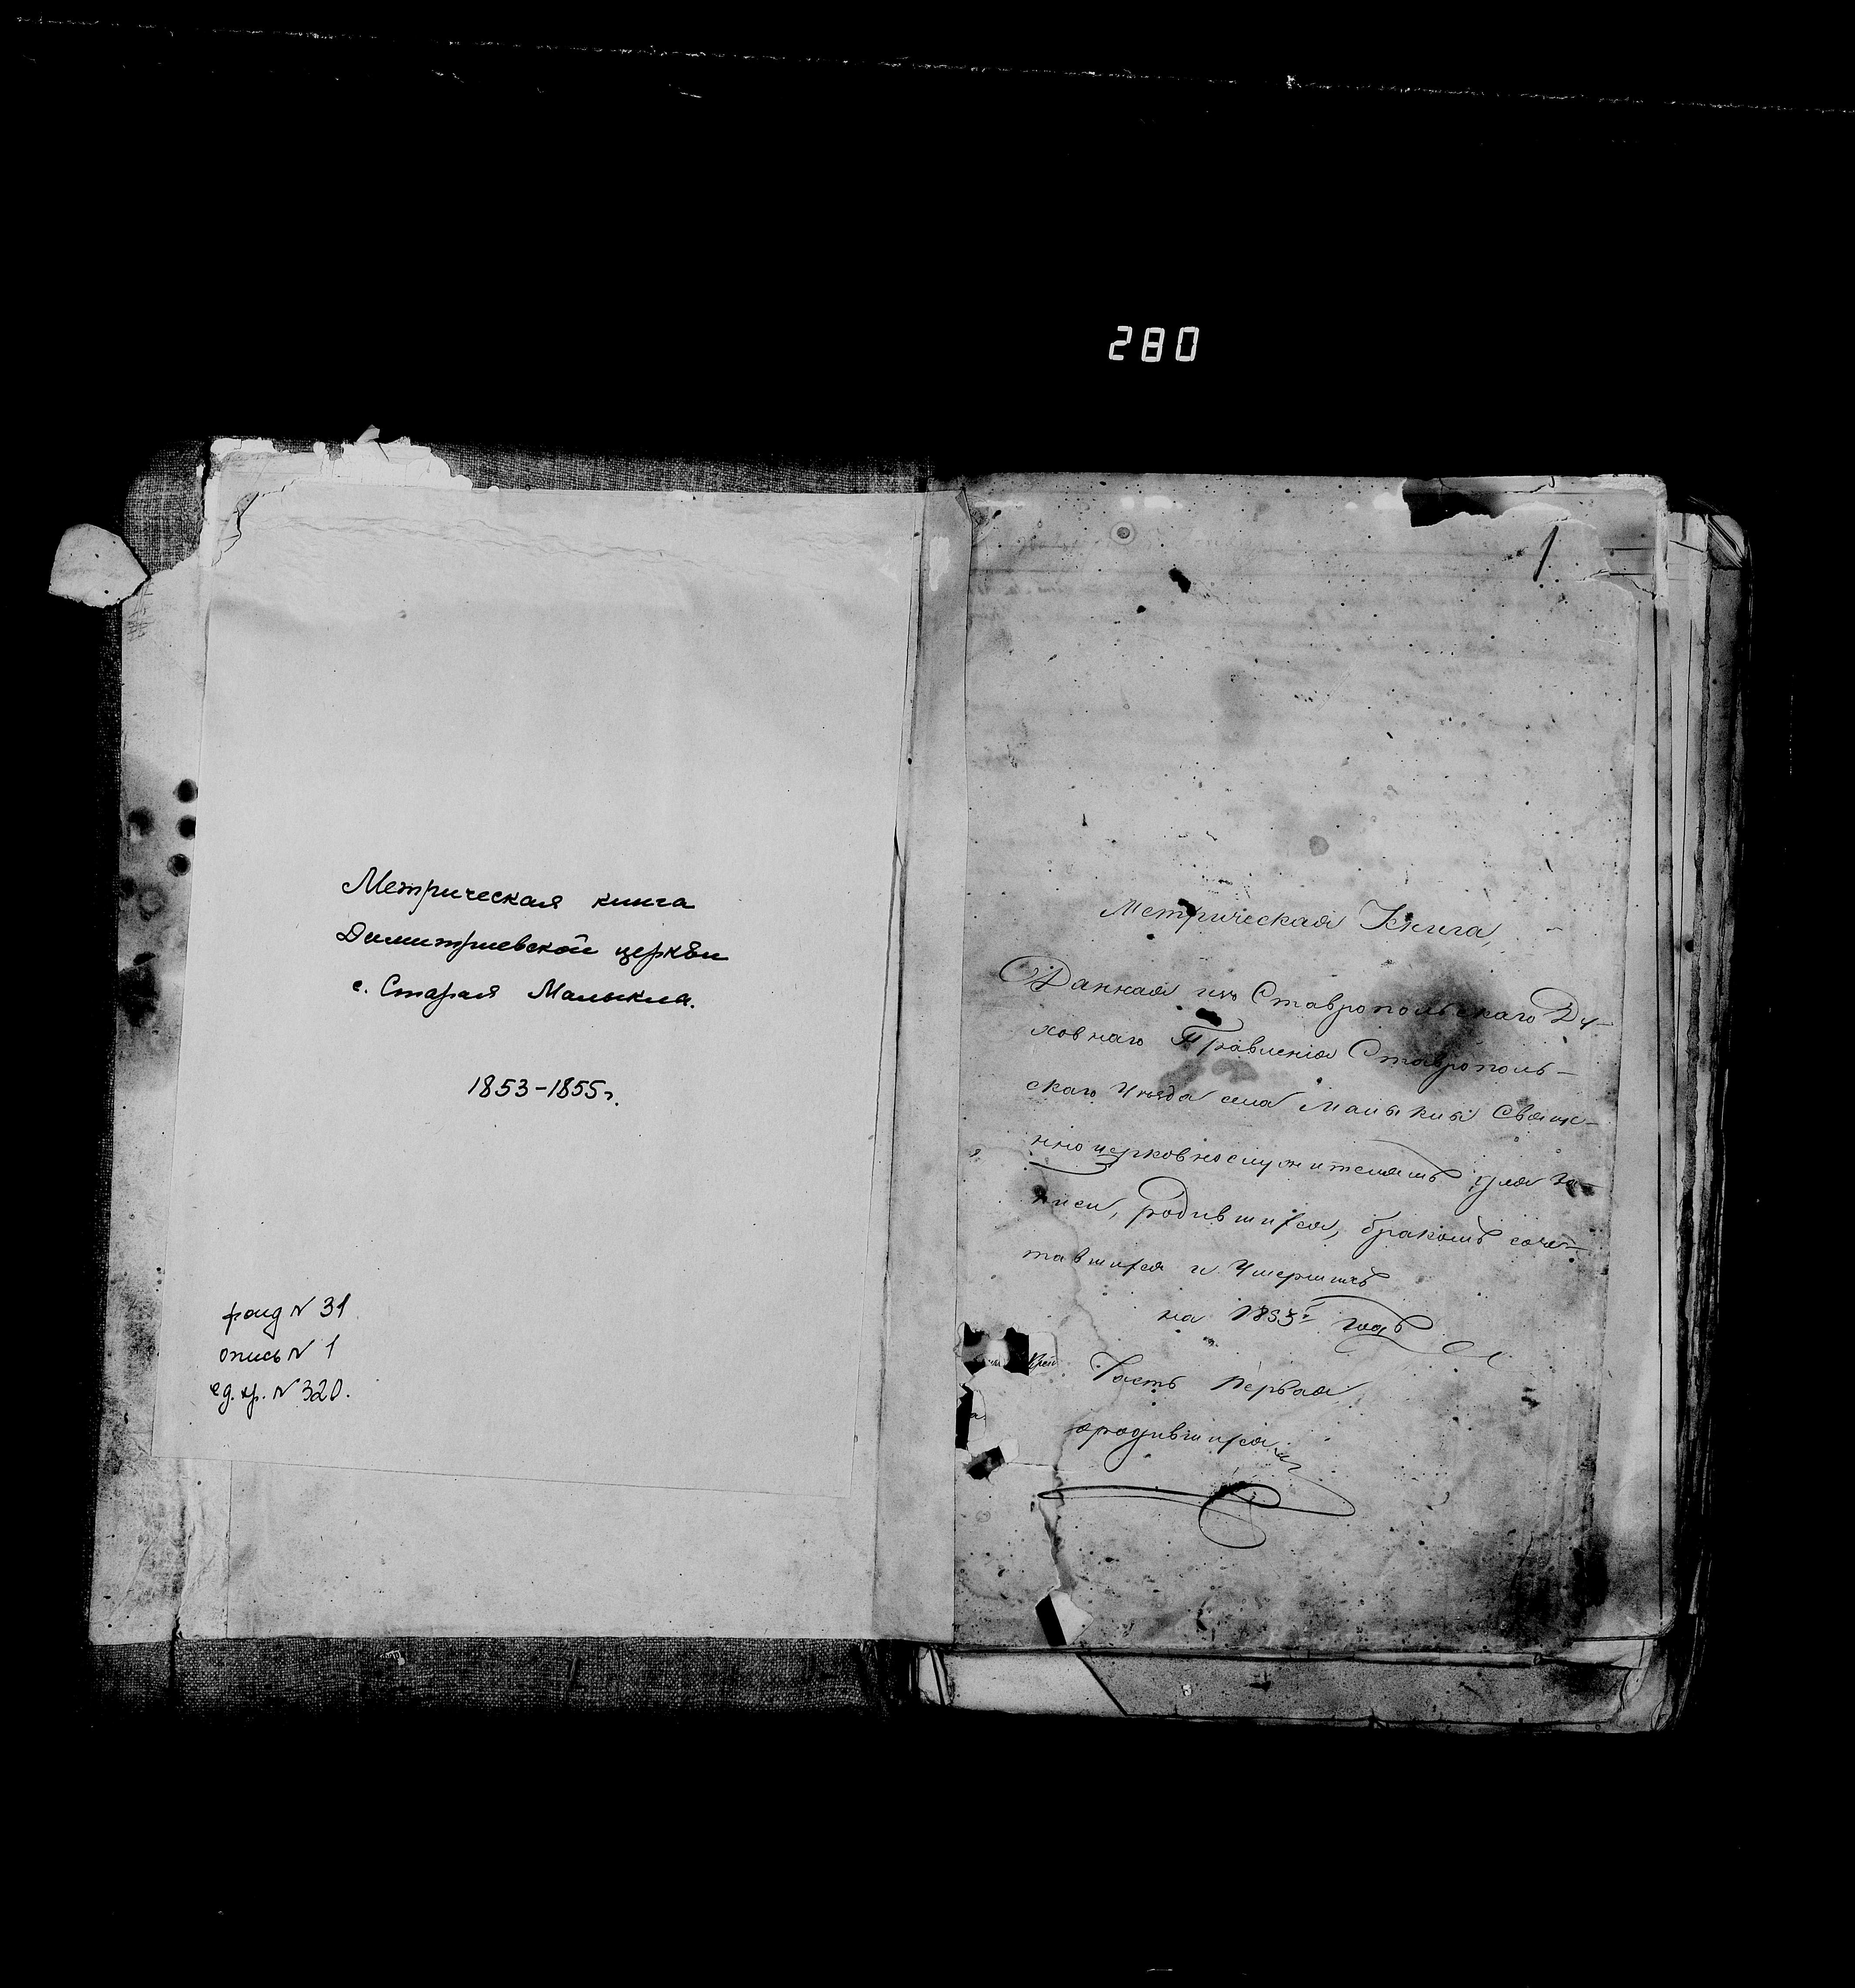 280
Метрическая книга
Димитриевской церкви
с. Старая Малыкла.
1853-1855г.
фонд N 31
опись N 1
ед. хр. N 320.
1
Метрическая Книга,
Данная изъ Ставропольскаго Ду-
ховнаго Правленія Ставрополь-
скаго Уѣзда села Малыклы Свяще-
нноцерковнослужителямъ для за-
писи, родившихся, бракомъ соче-
тавшихся и Умершихъ
на 1853й годъ
Часть Первая
ородившихся